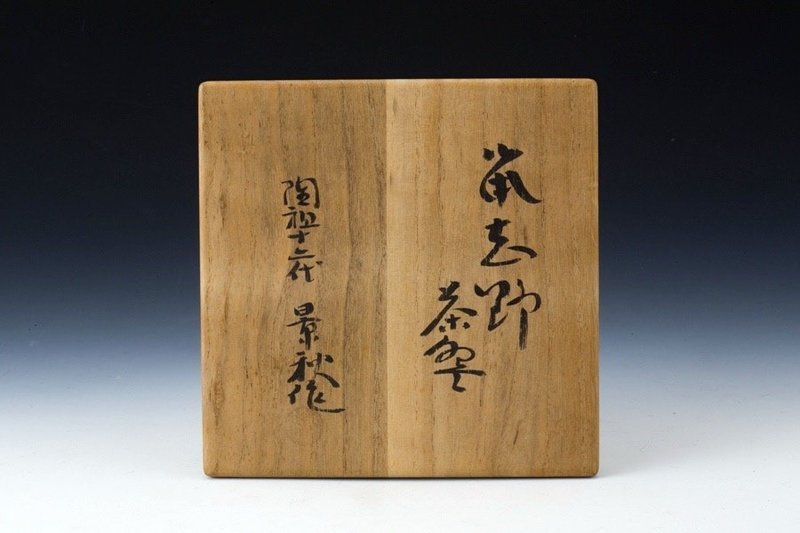 鼡志野
茶盌
陶祖十二代 景秋作